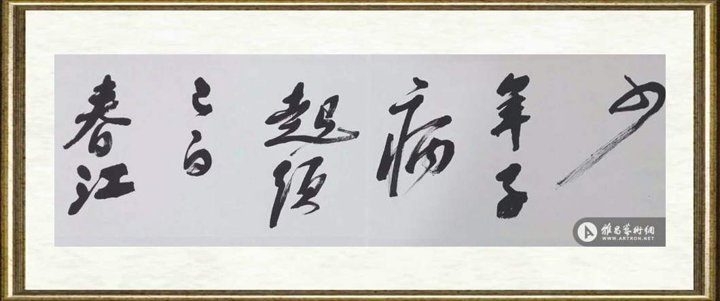 少
年子
病
起须
已白
春江
雅昌藝術網
WWW.ARTRON.NET